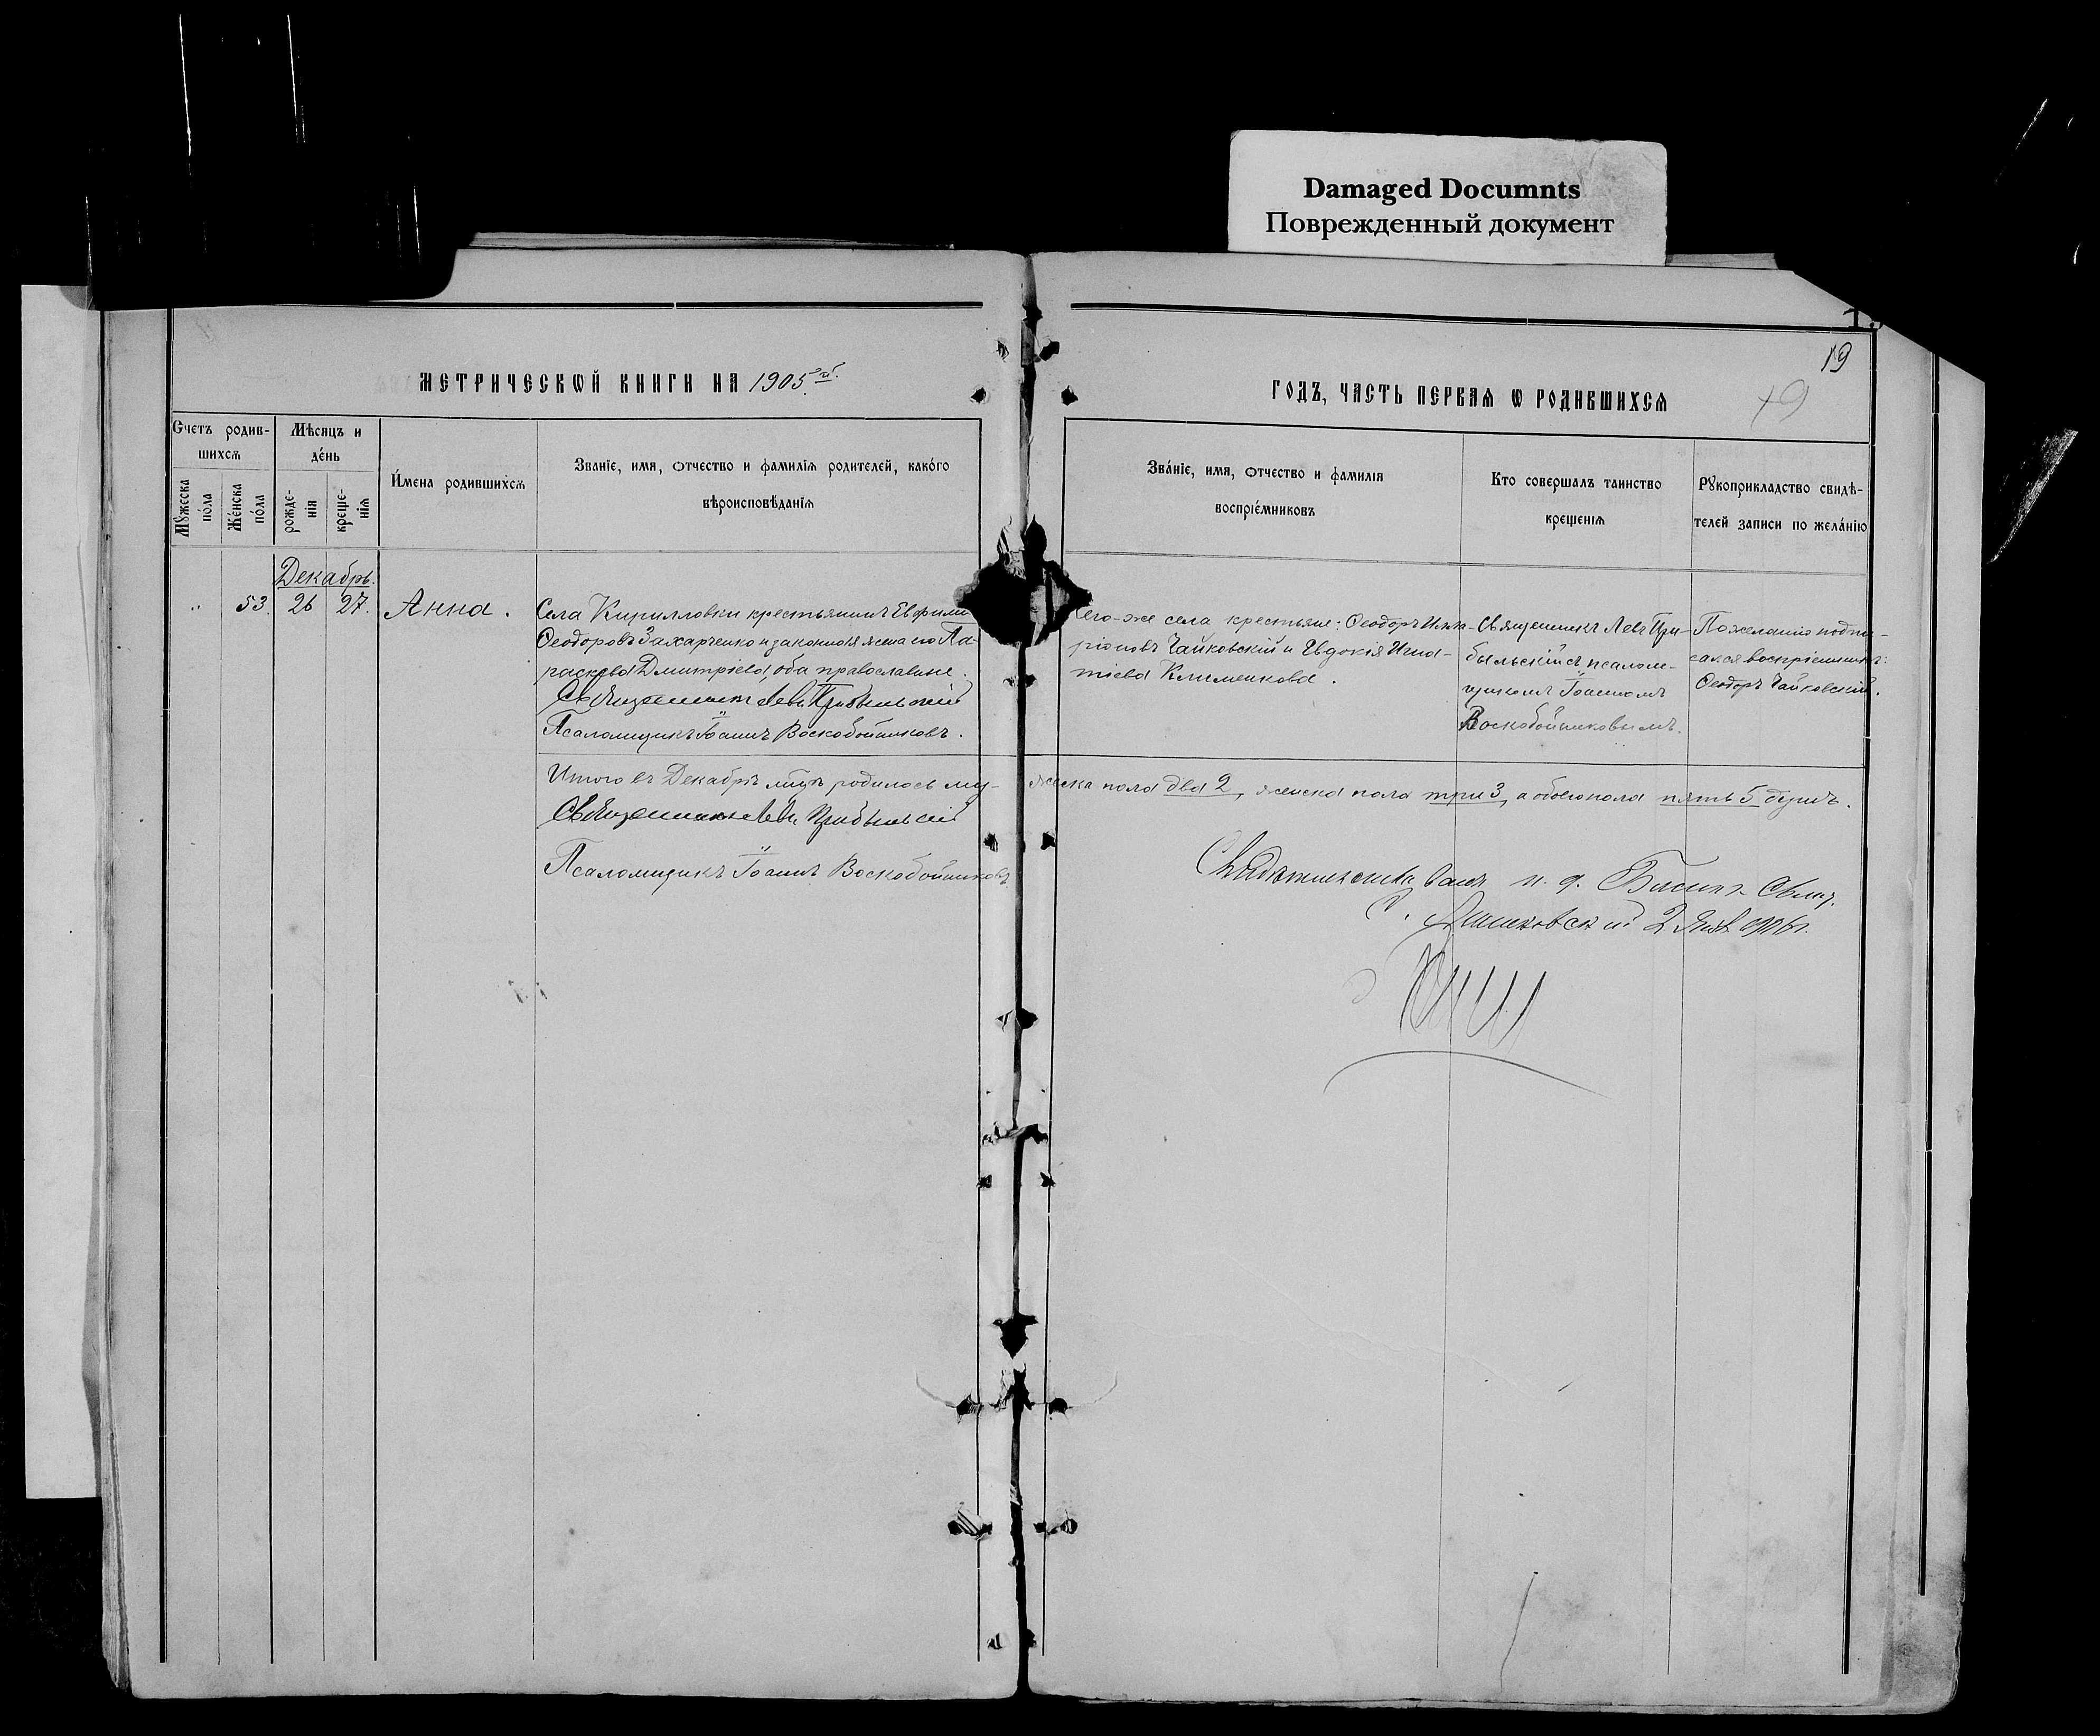 Damaged Documnts
Поврежденный документ
19
19
МЕТРИЧЕСКѠЙ КНИГИ НА 1905 ГОДЪ, ЧАСТЬ ПЕРВАѦ Ѡ РОДИВШИХСѦ
Счетъ родив-
шихсѧ
Мꙋжеска пола
Женска пола
Мѣсяцъ и
день
рожде-
нія
креще-
нія
Имена родившихсѧ
Званіе, имя, отчество и фамиліѧ родителей, какого
вѣроисповѣданіѧ
Званіе, имя, отчество и фамилія
воспріемниковъ
Кто совершалъ таинство
крещеніѧ
Рꙋкоприкладство свидѣ-
телей записи по желанію
Декабрь.
„ 53. 26 27. Анна.
Села Кирилловки крестьянинъ Евфимій
Ѳеодоровъ Захарченко и законная жена его Па-
раскева Дмитріева, оба православные.
Священникъ Левъ Прибыльскій
Псаломщикъ Іоаннъ Воскобойниковъ.
Сего-же села крестьяне: Ѳеодоръ Илла-
ріоновъ Чайковскій и Евдокія Игна-
тіева Клименкова.
Священникъ Левъ При-
быльскій съ псалом-
щикомъ Іоанномъ
Воскобойниковымъ.
По желанію подпи-
сался воспріемникъ:
Ѳеодоръ Чайковскій.
Итого въ Декабрѣ м͠цѣ родилось му- жеска пола два 2, женска пола три 3, а обоего пола пять 5 душъ.
Священникъ Левъ Прибыльскій
Псаломщикъ Іоаннъ Воскобойниковъ
Свидѣтельствовалъ и. д. Благ. Свящ.
2 Янв. 1906 г.